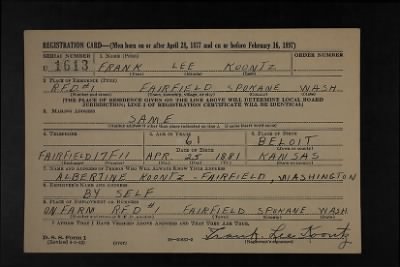 REGISTRATION CARD—(Men born on or after April 28, 1877 and on or before February 16, 1897)
SERIAL NUMBER 1. NAME (Print) ORDER NUMBER
U 1613 FRANK LEE KOONTZ
(First) (Middle) (Last)
2. PLACE OF RESIDENCE (Print)
R.F.D #1 FAIRFIELD SPOKANE WASH.
(Number and street) (Town, township, village, or city) (County) (State)
[THE PLACE OF RESIDENCE GIVEN ON THE LINE ABOVE WILL DETERMINE LOCAL BOARD
JURISDICTION; LINE 2 OF REGISTRATION CERTIFICATE WILL BE IDENTICAL]
3. MAILING ADDRESS
SAME
[Mailing address if other than place indicated on line 2. If same insert word same]
4. TELEPHONE 5. AGE IN YEARS 6. PLACE OF BIRTH
61 BELOIT
DATE OF BIRTH (Town or county)
FAIRFIELD 17F11 APR. 25 1881 KANSAS
(Exchange) (Number) (Mo.) (Day) (Yr.) (State or country)
7. NAME AND ADDRESS OF PERSON WHO WILL ALWAYS KNOW YOUR ADDRESS
ALBERTINE KOONTZ - FAIRFIELD, WASHINGTON
8. EMPLOYER'S NAME AND ADDRESS
BY SELF
9. PLACE OF EMPLOYMENT OR BUSINESS
ON FARM R.F.D #1 FAIRFIELD SPOKANE WASH.
(Number and street or R. F. D. number) (Town) (County) (State)
I AFFIRM THAT I HAVE VERIFIED ABOVE ANSWERS AND THAT THEY ARE TRUE.
D. S. S. Form 1
(Revised 4-1-42) (over) Frank Lee Koontz
(Registrant's signature)